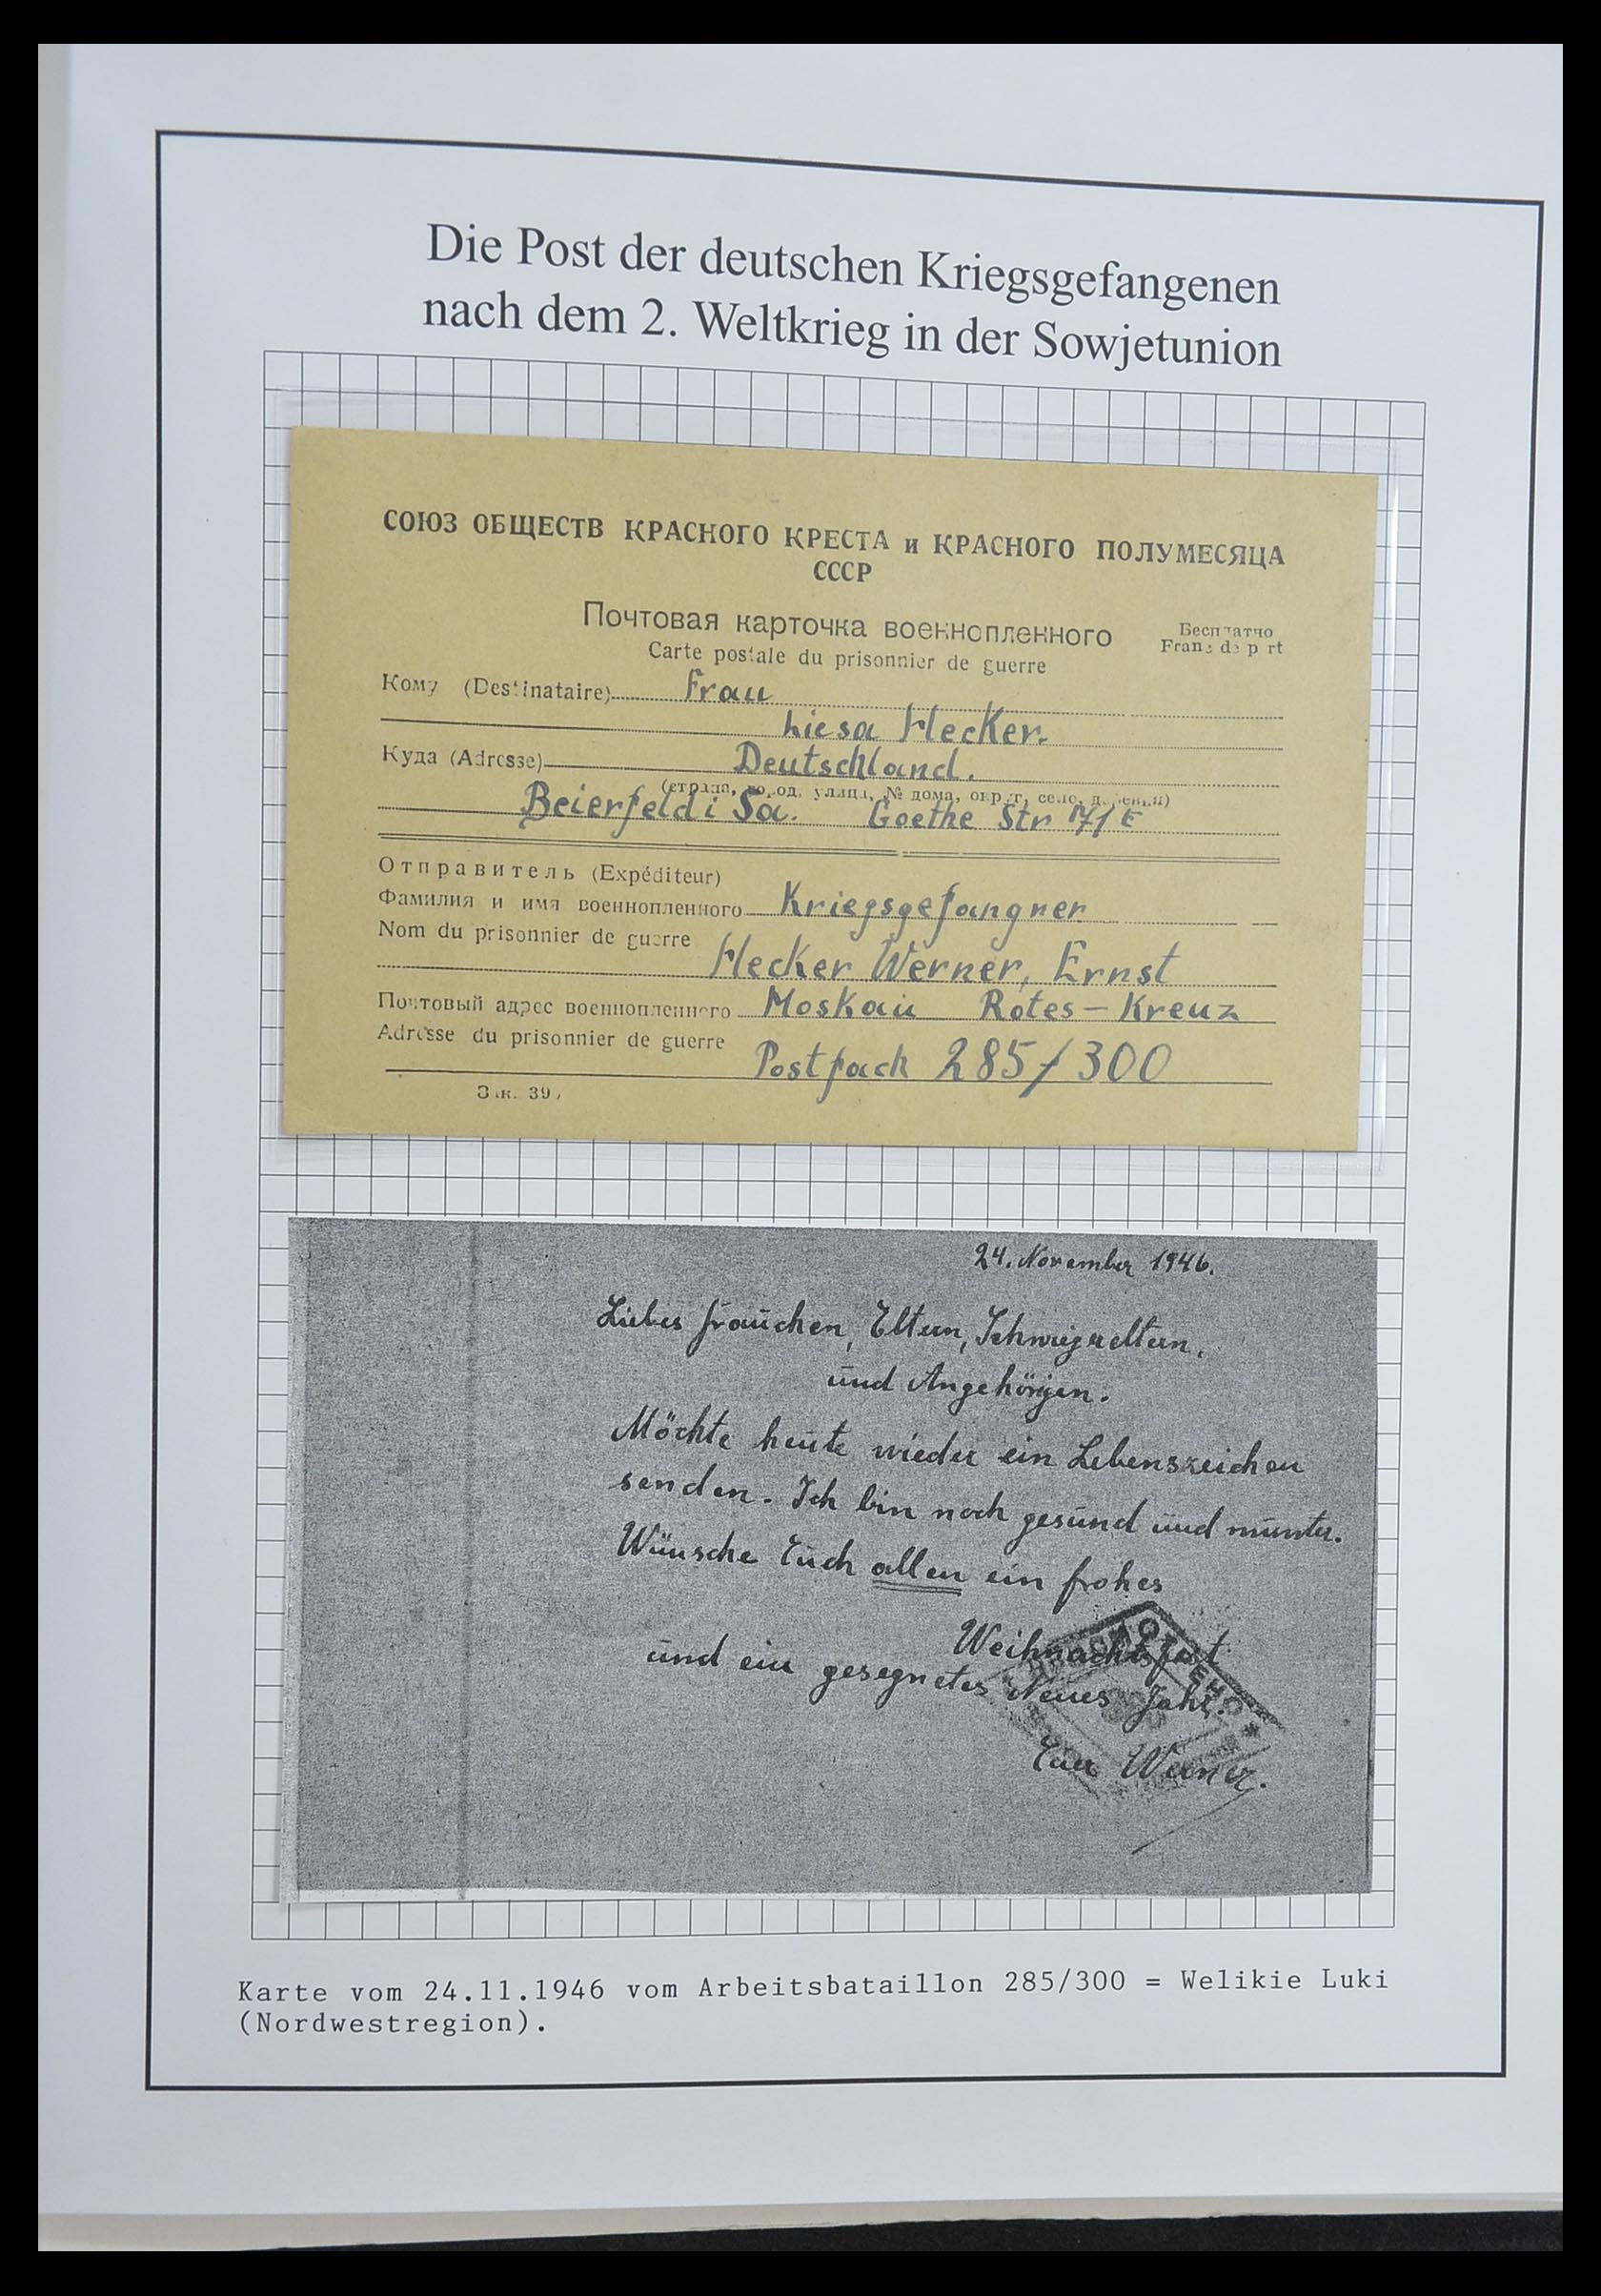 Die Post der deutschen Kriegsgefangenen
nach dem 2. Weltkrieg in der Sowjetunion
СОЮЗ ОБЩЕСТВ КРАСНОГО КРЕСТА и КРАСНОГО ПОЛУМЕСЯЦА
СССР
Почтовая карточка военнопленного
Бесплатно
Carte postale du prisonnier de guerre
Franc de port
Кому (Destinataire) Frau
Liesa Hecker.
Куда (Adresse) Deutschland.
(страна, город, улица, № дома, округ, село, деревня)
Beierfeld i Sa. Goethe Str 171 E
Отправитель (Expéditeur)
Фамилия и имя военнопленного Kriegsgefangner
Nom du prisonnier de guerre
Hecker Werner, Ernst
Почтовый адрес военнопленного Moskau Rotes-Kreuz
Adresse du prisonnier de guerre
Postfach 285/300
Зак. 39
24. November 1946.
Liebes Frauchen, Eltern, Schwiegereltern,
und Angehörigen.
Möchte heute wieder ein Lebenszeichen
senden. Ich bin noch gesund und munter.
Wünsche Euch allen ein frohes
Weihnachtsfest
und ein gesegnetes Neues Jahr.
Euer Werner.
Karte vom 24.11.1946 vom Arbeitsbataillon 285/300 = Welikie Luki
(Nordwestregion).